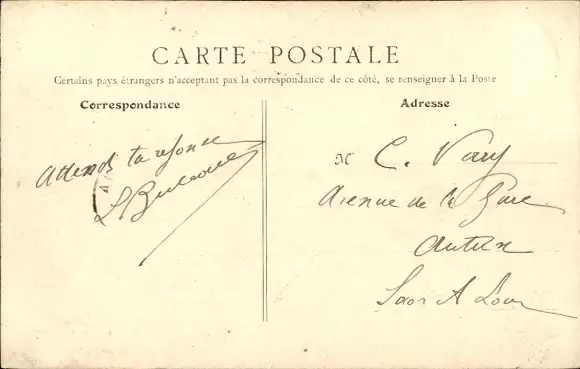 CARTE POSTALE
Certains pays étrangers n'acceptant pas la correspondance de ce côté, se renseigner à la Poste
Correspondance
Adresse
Attends ta réponse
M C.
Avenue de la Gare
Autun
Saone & Loire